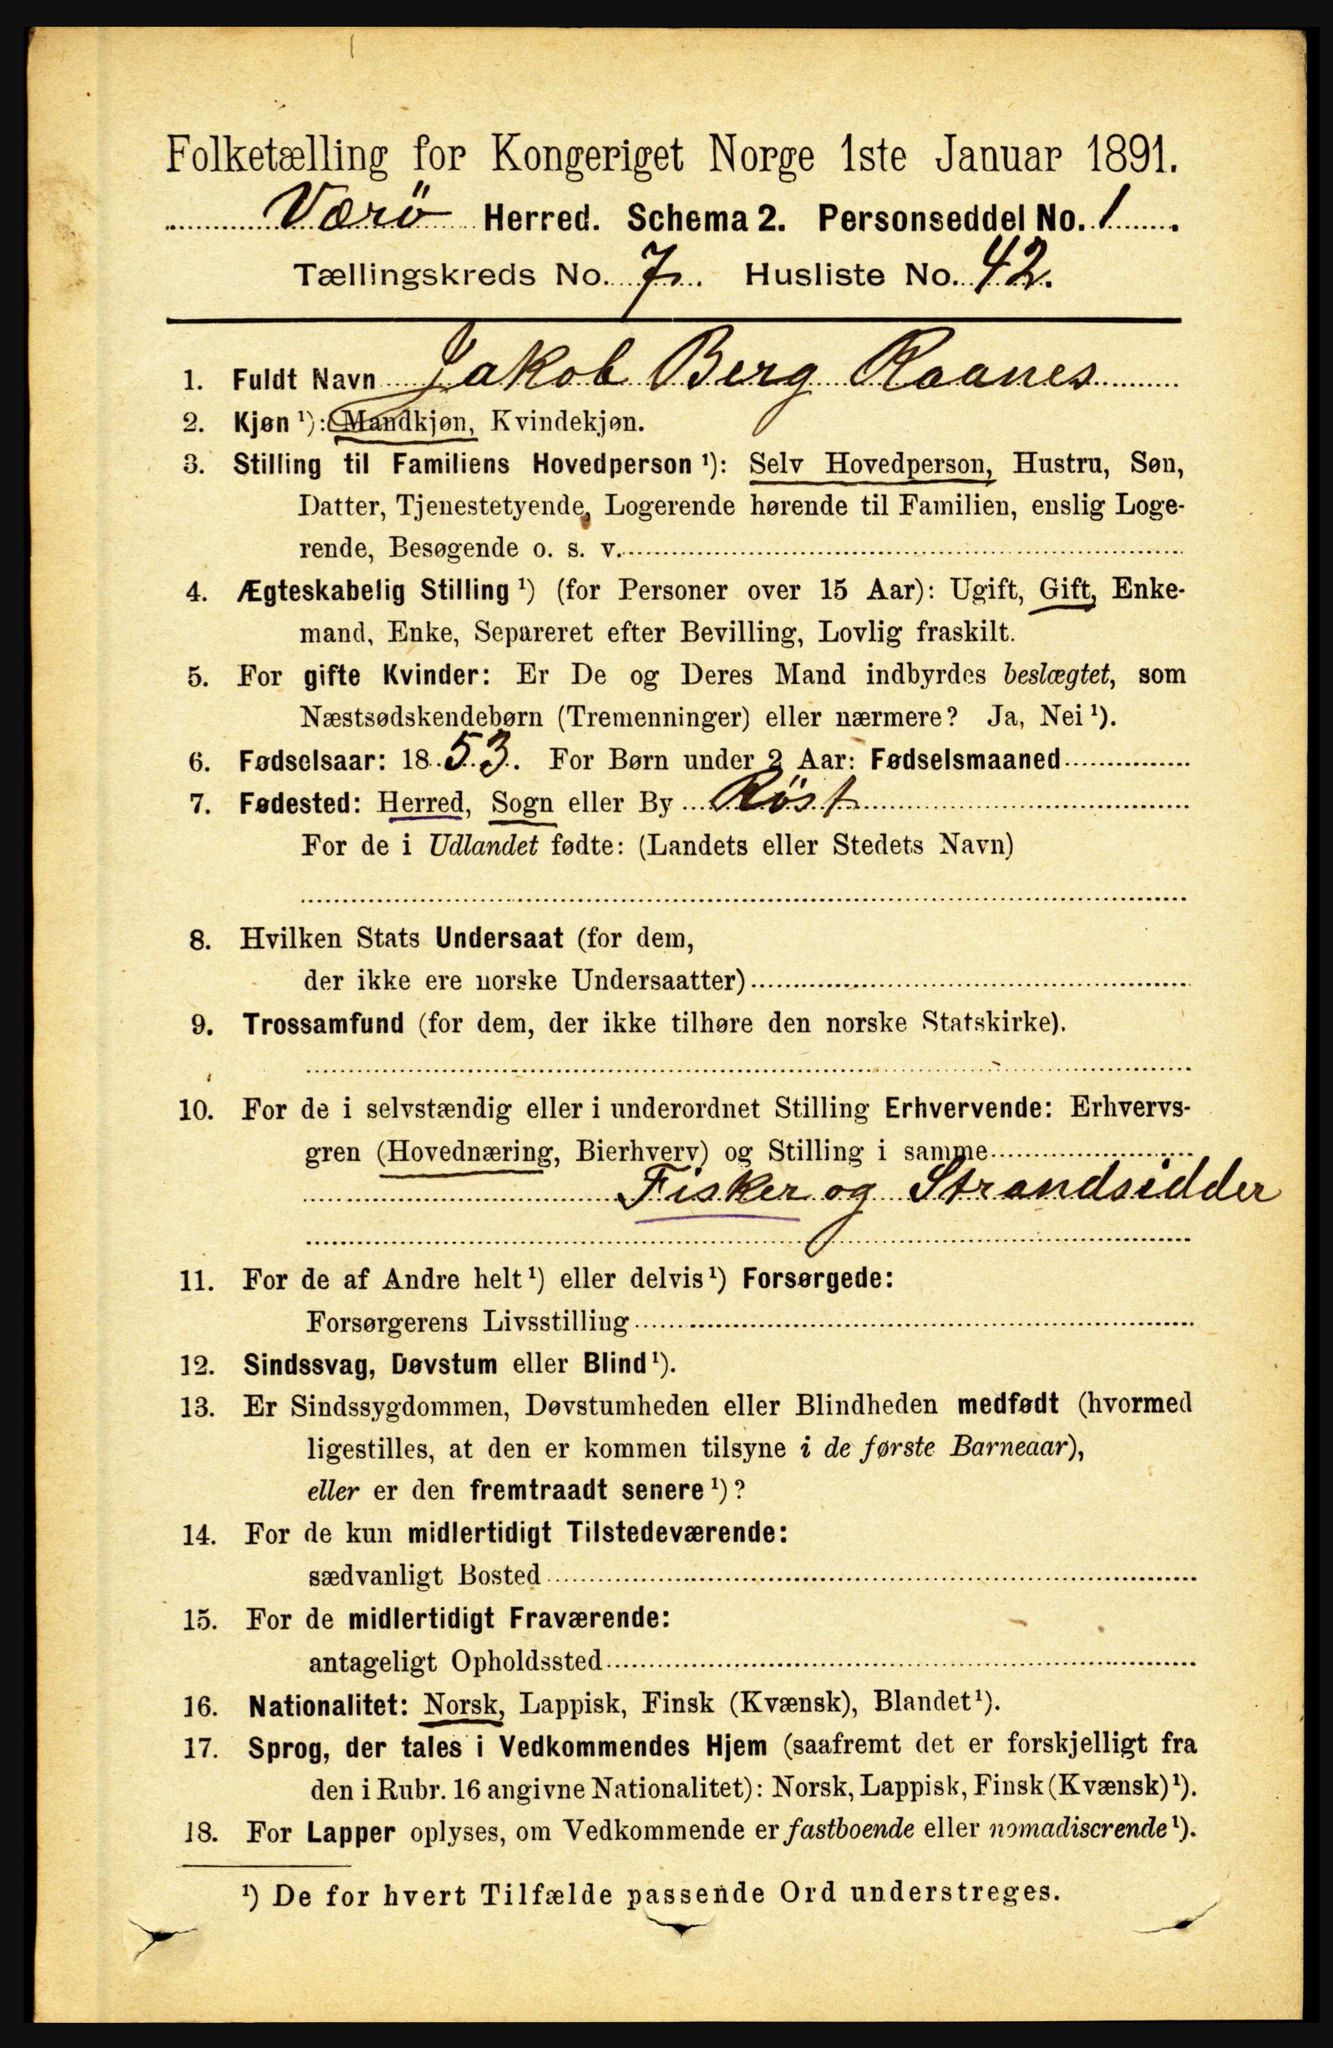 Folketælling for Kongeriget Norge 1ste Januar 1891.
Værö Herred. Schema 2. Personseddel No. 1.
Tællingskreds No. 7. Husliste No. 42.
1. Fuldt Navn Jakob Berg Raanes
2. Kjøn ¹): Mandkjøn, Kvindekjøn.
3. Stilling til Familiens Hovedperson ¹): Selv Hovedperson, Hustru, Søn,
Datter, Tjenestetyende, Logerende hørende til Familien, enslig Loge-
rende, Besøgende o. s. v.
4. Ægteskabelig Stilling ¹) (for Personer over 15 Aar): Ugift, Gift, Enke-
mand, Enke, Separeret efter Bevilling, Lovlig fraskilt.
5. For gifte Kvinder: Er De og Deres Mand indbyrdes beslægtet, som
Næstsødskendebørn (Tremenninger) eller nærmere? Ja, Nei ¹).
6. Fødselsaar: 1853. For Børn under 2 Aar: Fødselsmaaned
7. Fødested: Herred, Sogn eller By Röst
For de i Udlandet fødte: (Landets eller Stedets Navn)
8. Hvilken Stats Undersaat (for dem,
der ikke ere norske Undersaatter)
9. Trossamfund (for dem, der ikke tilhøre den norske Statskirke).
10. For de i selvstændig eller i underordnet Stilling Erhvervende: Erhvervs-
gren (Hovednæring, Bierhverv) og Stilling i samme
Fisker og Strandsidder
11. For de af Andre helt ¹) eller delvis ¹) Forsørgede:
Forsørgerens Livsstilling
12. Sindssvag, Døvstum eller Blind ¹).
13. Er Sindssygdommen, Døvstumheden eller Blindheden medfødt (hvormed
ligestilles, at den er kommen tilsyne i de første Barneaar),
eller er den fremtraadt senere ¹)?
14. For de kun midlertidigt Tilstedeværende:
sædvanligt Bosted
15. For de midlertidigt Fraværende:
antageligt Opholdssted
16. Nationalitet: Norsk, Lappisk, Finsk (Kvænsk), Blandet ¹).
17. Sprog, der tales i Vedkommendes Hjem (saafremt det er forskjelligt fra
den i Rubr. 16 angivne Nationalitet): Norsk, Lappisk, Finsk (Kvænsk) ¹).
18. For Lapper oplyses, om Vedkommende er fastboende eller nomadiserende ¹).
¹) De for hvert Tilfælde passende Ord understreges.